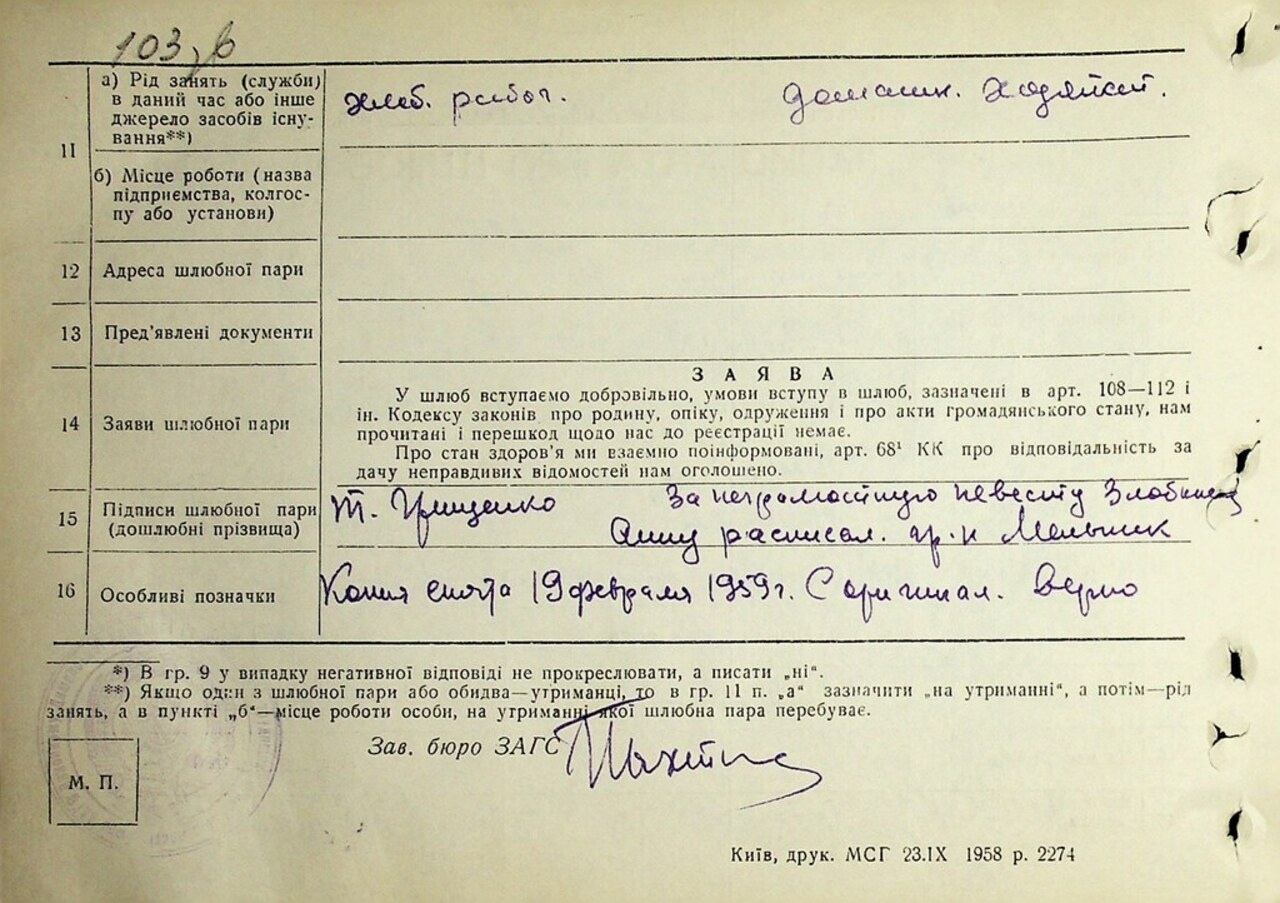 103, в
11
а) Рід занять (служби)
в даний час або інше
джерело засобів існу-
вання**)
хлеб. работ.
домашн. хозяйкой.
б) Місце роботи (назва
підприємства, колгос-
пу або установи)
12
Адреса шлюбної пари
13
Пред'явлені документи
14
Заяви шлюбної пари
ЗАЯВА
У шлюб вступаємо добровільно, умови вступу в шлюб, зазначені в арт. 108—112 і
ін. Кодексу законів про родину, опіку, одруження і про акти громадянського стану, нам
прочитані і перешкод щодо нас до реєстрації немає.
Про стан здоров'я ми взаємно поінформовані, арт. 68¹ КК про відповідальність за
дачу неправдивих відомостей нам оголошено.
15
Підписи шлюбної пари
(дошлюбні прізвища)
Т. Грищенко
За неграмотную невесту
Анну расписал. гр-н Мельник
16
Особливі позначки
Копия снята 19 февраля 1959 г. С оригинал. верно
*) В гр. 9 у випадку негативної відповіді не прокреслювати, а писати „ні“.
**) Якщо один з шлюбної пари або обидва—утриманці, то в гр. 11 п. „а“ зазначити „на утриманні“, а потім—рід
занять, а в пункті „б“—місце роботи особи, на утриманні якої шлюбна пара перебуває.
Зав. бюро ЗАГС
М. П.
Київ, друк. МСГ 23.IX 1958 р. 2274